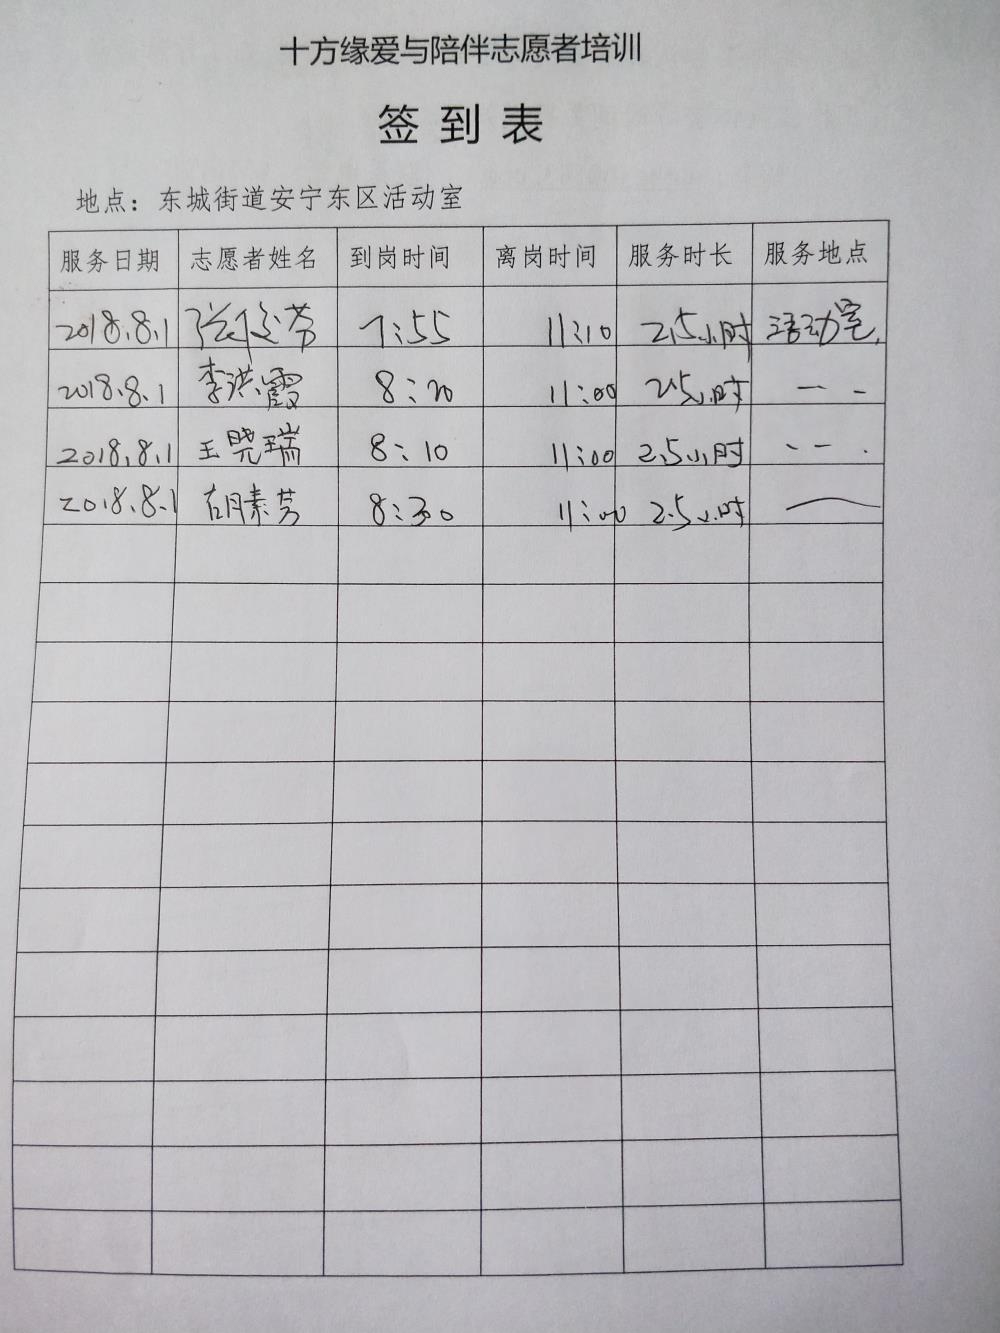 十方缘爱与陪伴志愿者培训
签到表
地点：东城街道安宁东区活动室
服务日期 志愿者姓名 到岗时间 离岗时间 服务时长 服务地点
2018.8.1 张 芬 7:55 11:10 2.5小时 活动室
2018.8.1 李洪霞 8:20 11:00 2.5小时
2018.8.1 王晓瑞 8:10 11:00 2.5小时
2018.8.1 胡素芳 8:30 11:00 2.5小时